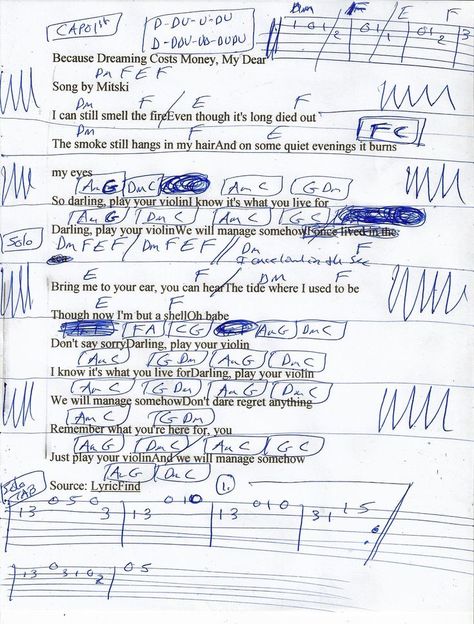 CAPO 1st
D-DU-U-DU
D-DDU-UD-DUDU
Dm Fm E F
1 0 1 2 0 1 1 0 1 2 3
Because Dreaming Costs Money, My Dear
Dm F E F
Song by Mitski
Dm F E F
I can still smell the fireEven though it's long died out
Dm F E F
FC
The smoke still hangs in my hairAnd on some quiet evenings it burns
my eyes
Am G Dm C Am C G Dm
So darling, play your violinI know it's what you live for
Am G Dm C Am C G C
Darling, play your violinWe will manage somehowI once lived in the
Solo
Dm F E F / Dm F E F // Dm F
I once lived in the sea
E F Dm F
Bring me to your ear, you can hearThe tide where I used to be
E F
Though now I'm but a shellOh babe
F A C G Am G Dm C
Don't say sorryDarling, play your violin
Am C G Dm Am G Dm C
I know it's what you live forDarling, play your violin
Am C G Dm Am G Dm C
We will manage somehowDon't dare regret anything
Am C G Dm
Remember what you're here for, you
Am G Dm C Am C G C
Just play your violinAnd we will manage somehow
Am G Dm C
Solo TAB
Source: LyricFind
1.
1 3 0 5 0 3 1 3 0 1 0 1 3 0 1 0 3 1 1 5
1 3 0 3 1 0 2 0 5